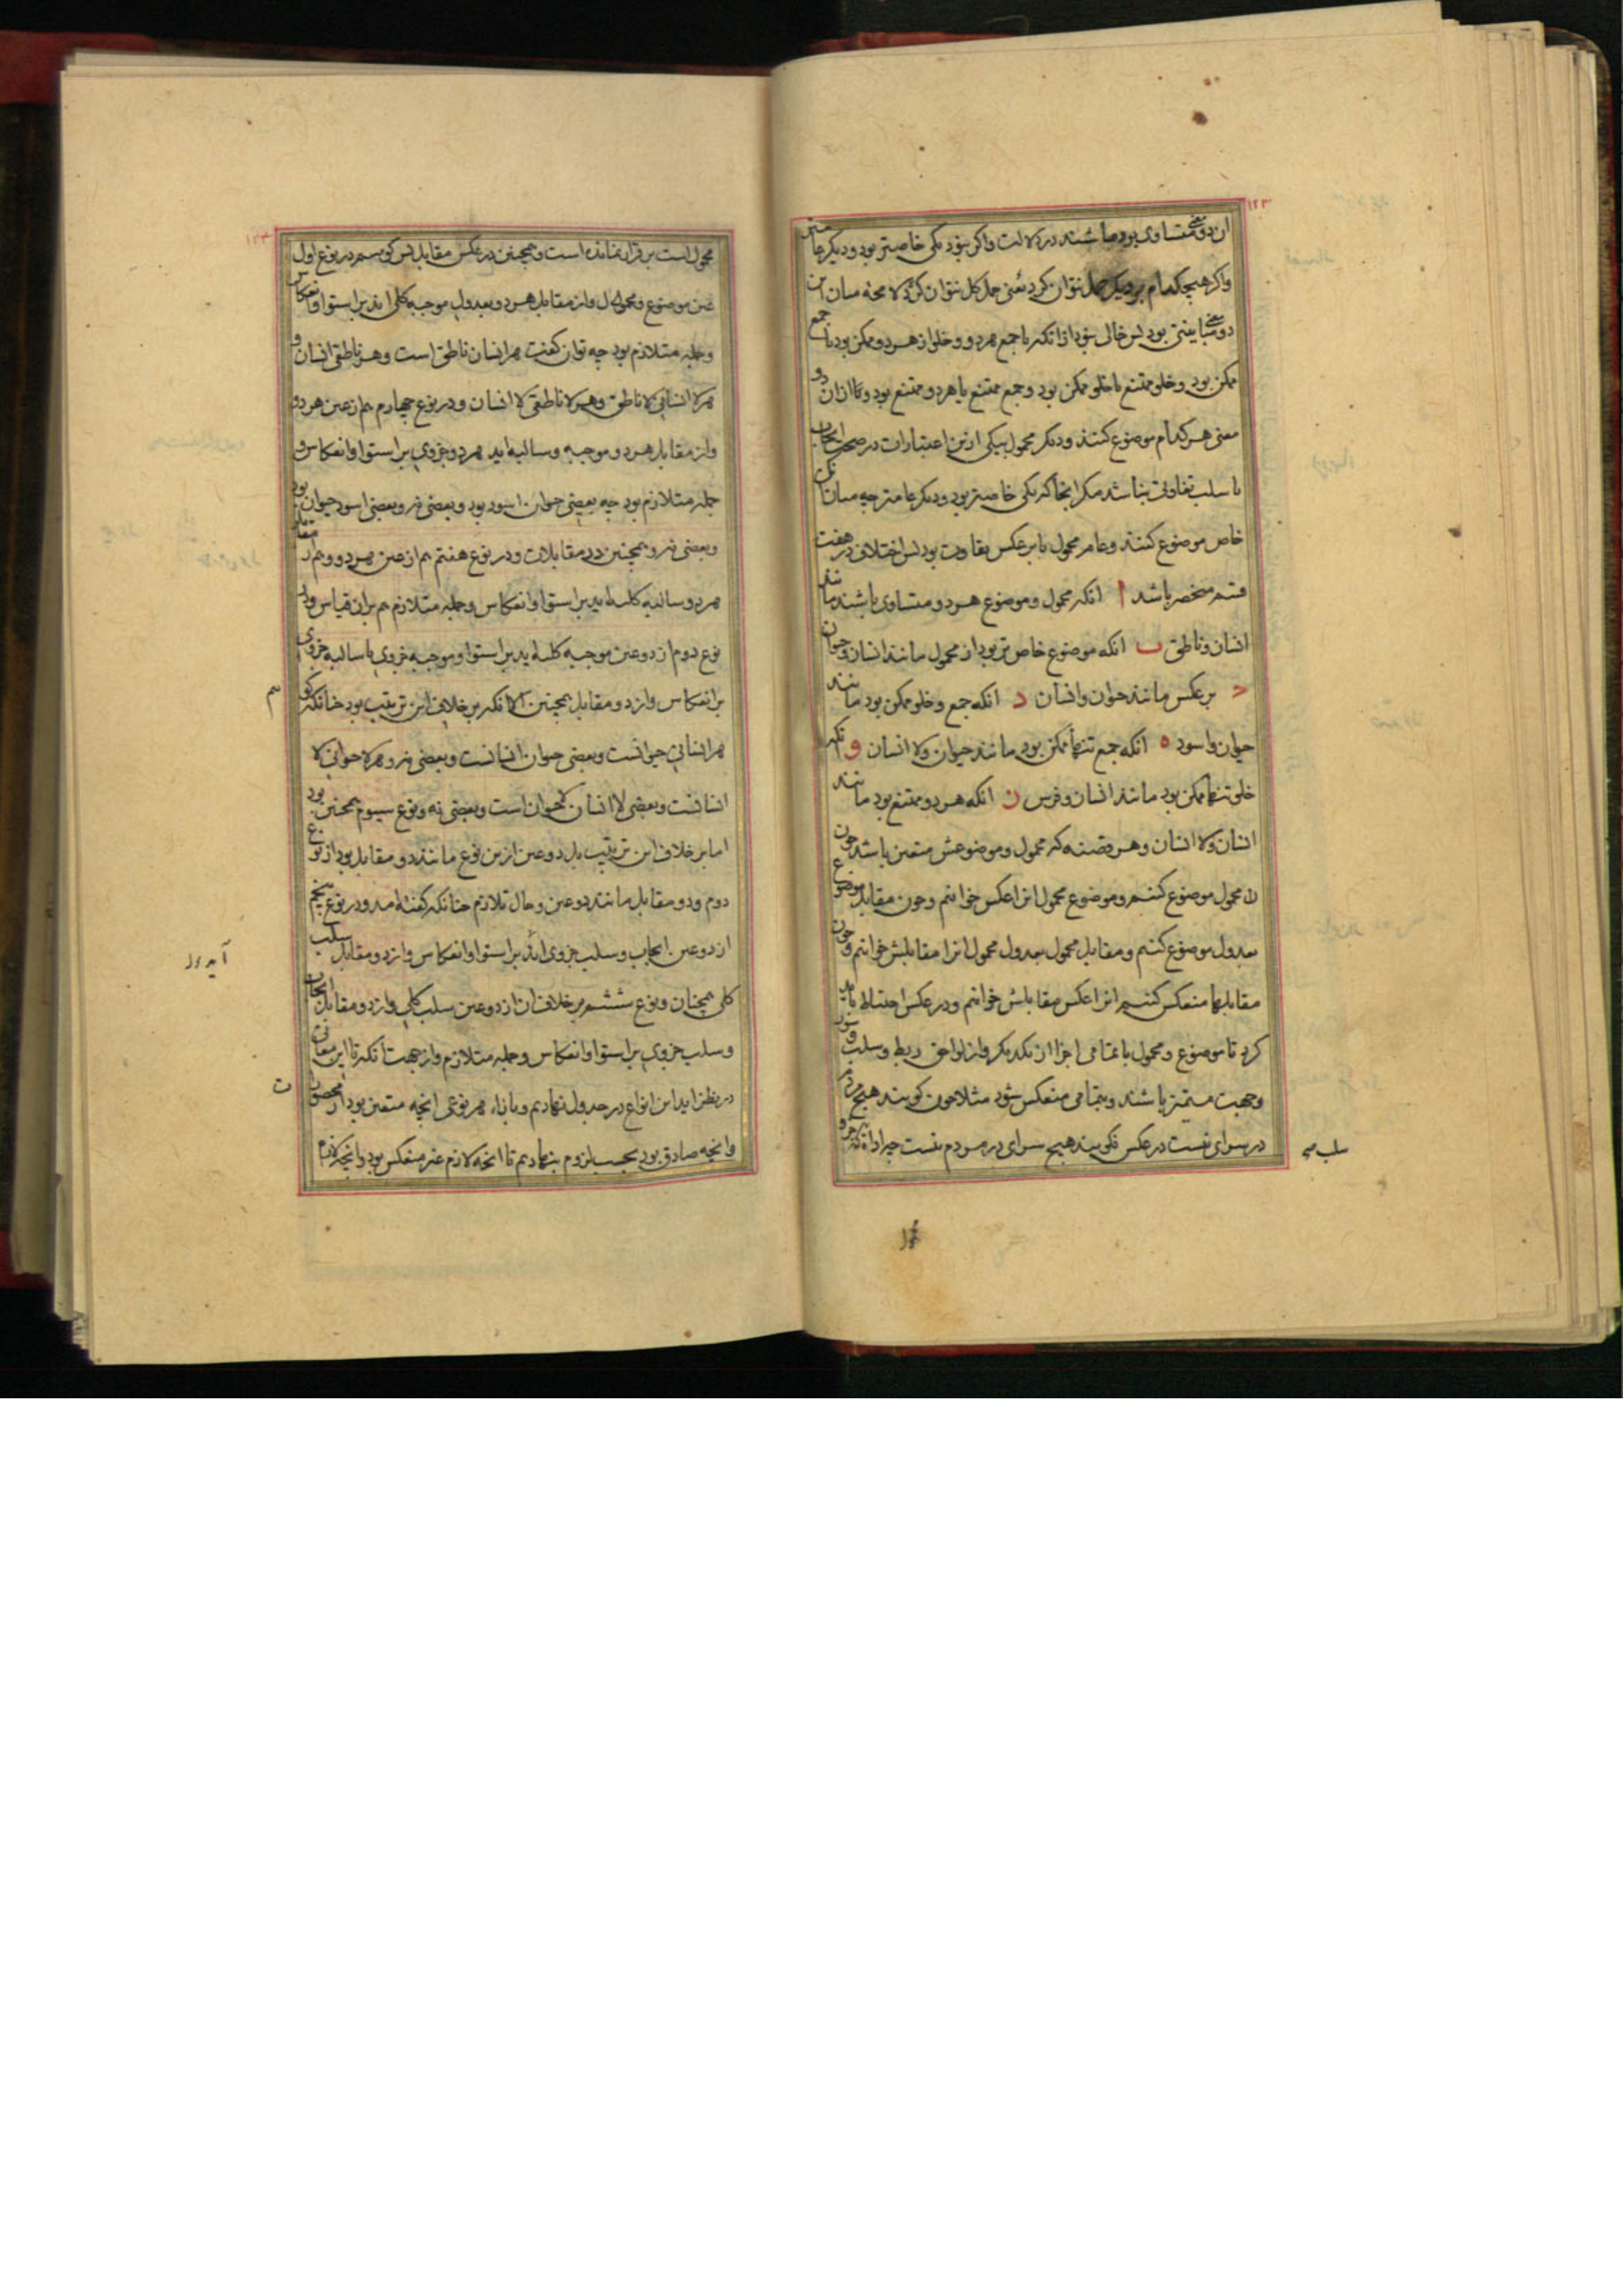 ۱۲۳
ان دو معنی متساوی بود ما شند در دلالت واکر نبود یکی خاصتر بود و دیکر عامتر
واکر هیچکدام بر دیکر حمل نتوان کرد یعنی حمل کل نتوان کرد لا محه میان این
دو معنی مباینتی بود پس خالی نبود از انکه یا جمع هردو و خلو از هردو ممکن بود یا جمع
ممکن بود و خلو ممتنع یا خلو ممکن بود و جمع ممتنع یا هردو ممتنع بود و کاا زان دو
معنی هرکدام موضوع کنند و دیکر محمول بیکی ازین اعتبارات در صحت ایجاب
یا سلب تفاوتی نباشد مکر انجا که یکی خاصتر بود و دیکر عامتر چه میان انک
خاص موضوع کنند و عام محمول یا برعکس تفاوت بود پس اختلاف در هفت
قسم منحصر باشد ا انکه محمول و موضوع هردو متساوی باشند مانند
انسان و ناطق ب انکه موضوع خاص تر بود از محمول مانند انسان و حیوان
ح برعکس مانند حیوان و انسان د انکه جمع و خلو ممکن بود مانند
حیوان و اسود ه انکه جمع تنها ممکن بود مانند حیوان و لا انسان و انکه
خلو تنها ممکن بود مانند انسان و فرس ن انکه هردو ممتنع بود مانند
انسان و لا انسان و هر قضیه که محمول و موضوعش متعین باشد چون
ان محمول موضوع کنیم و موضوع محمول انرا عکس خوانیم و چون مقابل موضوع
بعدول موضوع کنیم و مقابل محمول بعدول محمول انرا مقابلش خوانیم و چون
مقابلها منعکس کنیم انرا عکس مقابلش خوانیم و در عکس احتیاط باید
کرد تا موضوع و محمول با تمامی اجزا از یکدیکر و از لواحق ربط و سلب و سور
وجهت متمیز باشند و بتمامی منعکس شود مثلا چون کویند هیچ مردم
در سرای نیست در عکس نکویند هیچ سرای در مردم نیست چه اداة
سلب
محمول است بر قرار نمانده است و همچنین در عکس مقابل پس کوییم در نوع اول
عین موضوع و محمول و از مقابل هردو بعدول موجبه کلی اند بر استوا و انعکاس
و جمله متلازم بود چه توان کفت هر انسان ناطق است و هر ناطقی انسان و
هر لا انسانی لا ناطق و هر لا ناطقی لا انسان و در نوع چهارم هم از عین هردو
و از مقابل هردو موجبه و سالبه اید هردو جزوی بر استوا و انعکاس و
جمله متلازم بود چه بعضی حیوان اسود بود و بعضی نه و بعضی اسود حیوان بود
و بعضی نه و همچنین در مقابلات و در نوع هفتم هم از عین هردو و هم از مقابل
هردو سالبه کلیه اید بر استوا و انعکاس و جمله متلازم هم بران قیاس و در
نوع دوم از دو عین موجبه کلیه اید بر استوا و موجبه جزوی با سالبه جزوی
بر انعکاس و از دو مقابل همچنین الا انکه بر خلاف این ترتیب بود چنانکه کوییم
هر انسانی حیوانست و بعضی حیوان انسانست و بعضی نه و هر لا حیوانی لا
انسانست و بعضی لا انسان لا حیوان است و بعضی نه و نوع سیوم همچنین بود
اما بر خلاف این ترتیب بل دو عین ازین نوع مانند دو مقابل بود از نوع
دوم و دو مقابل مانند دو عین و حال تلازم چنانکه کفته امد و در نوع پنجم
از دو عین ایجاب و سلب جزوی اند بر استوا و انعکاس و از دو مقابل سلب
کلی همچنان و نوع ششم بر خلاف ان از دو عین سلب کلی و از دو مقابل ایجاب
و سلب جزوی بر استوا و انعکاس و جمله متلازم و از جهت انکه تا این معانی
در نظر اید این انواع در جدول نهادیم و بازاء هر نوعی انچه متعین بود از محصورات
و انچه صادق بود بحسب لزوم بنهادیم تا انچه لازم غیر منعکس بود و انچه لازم